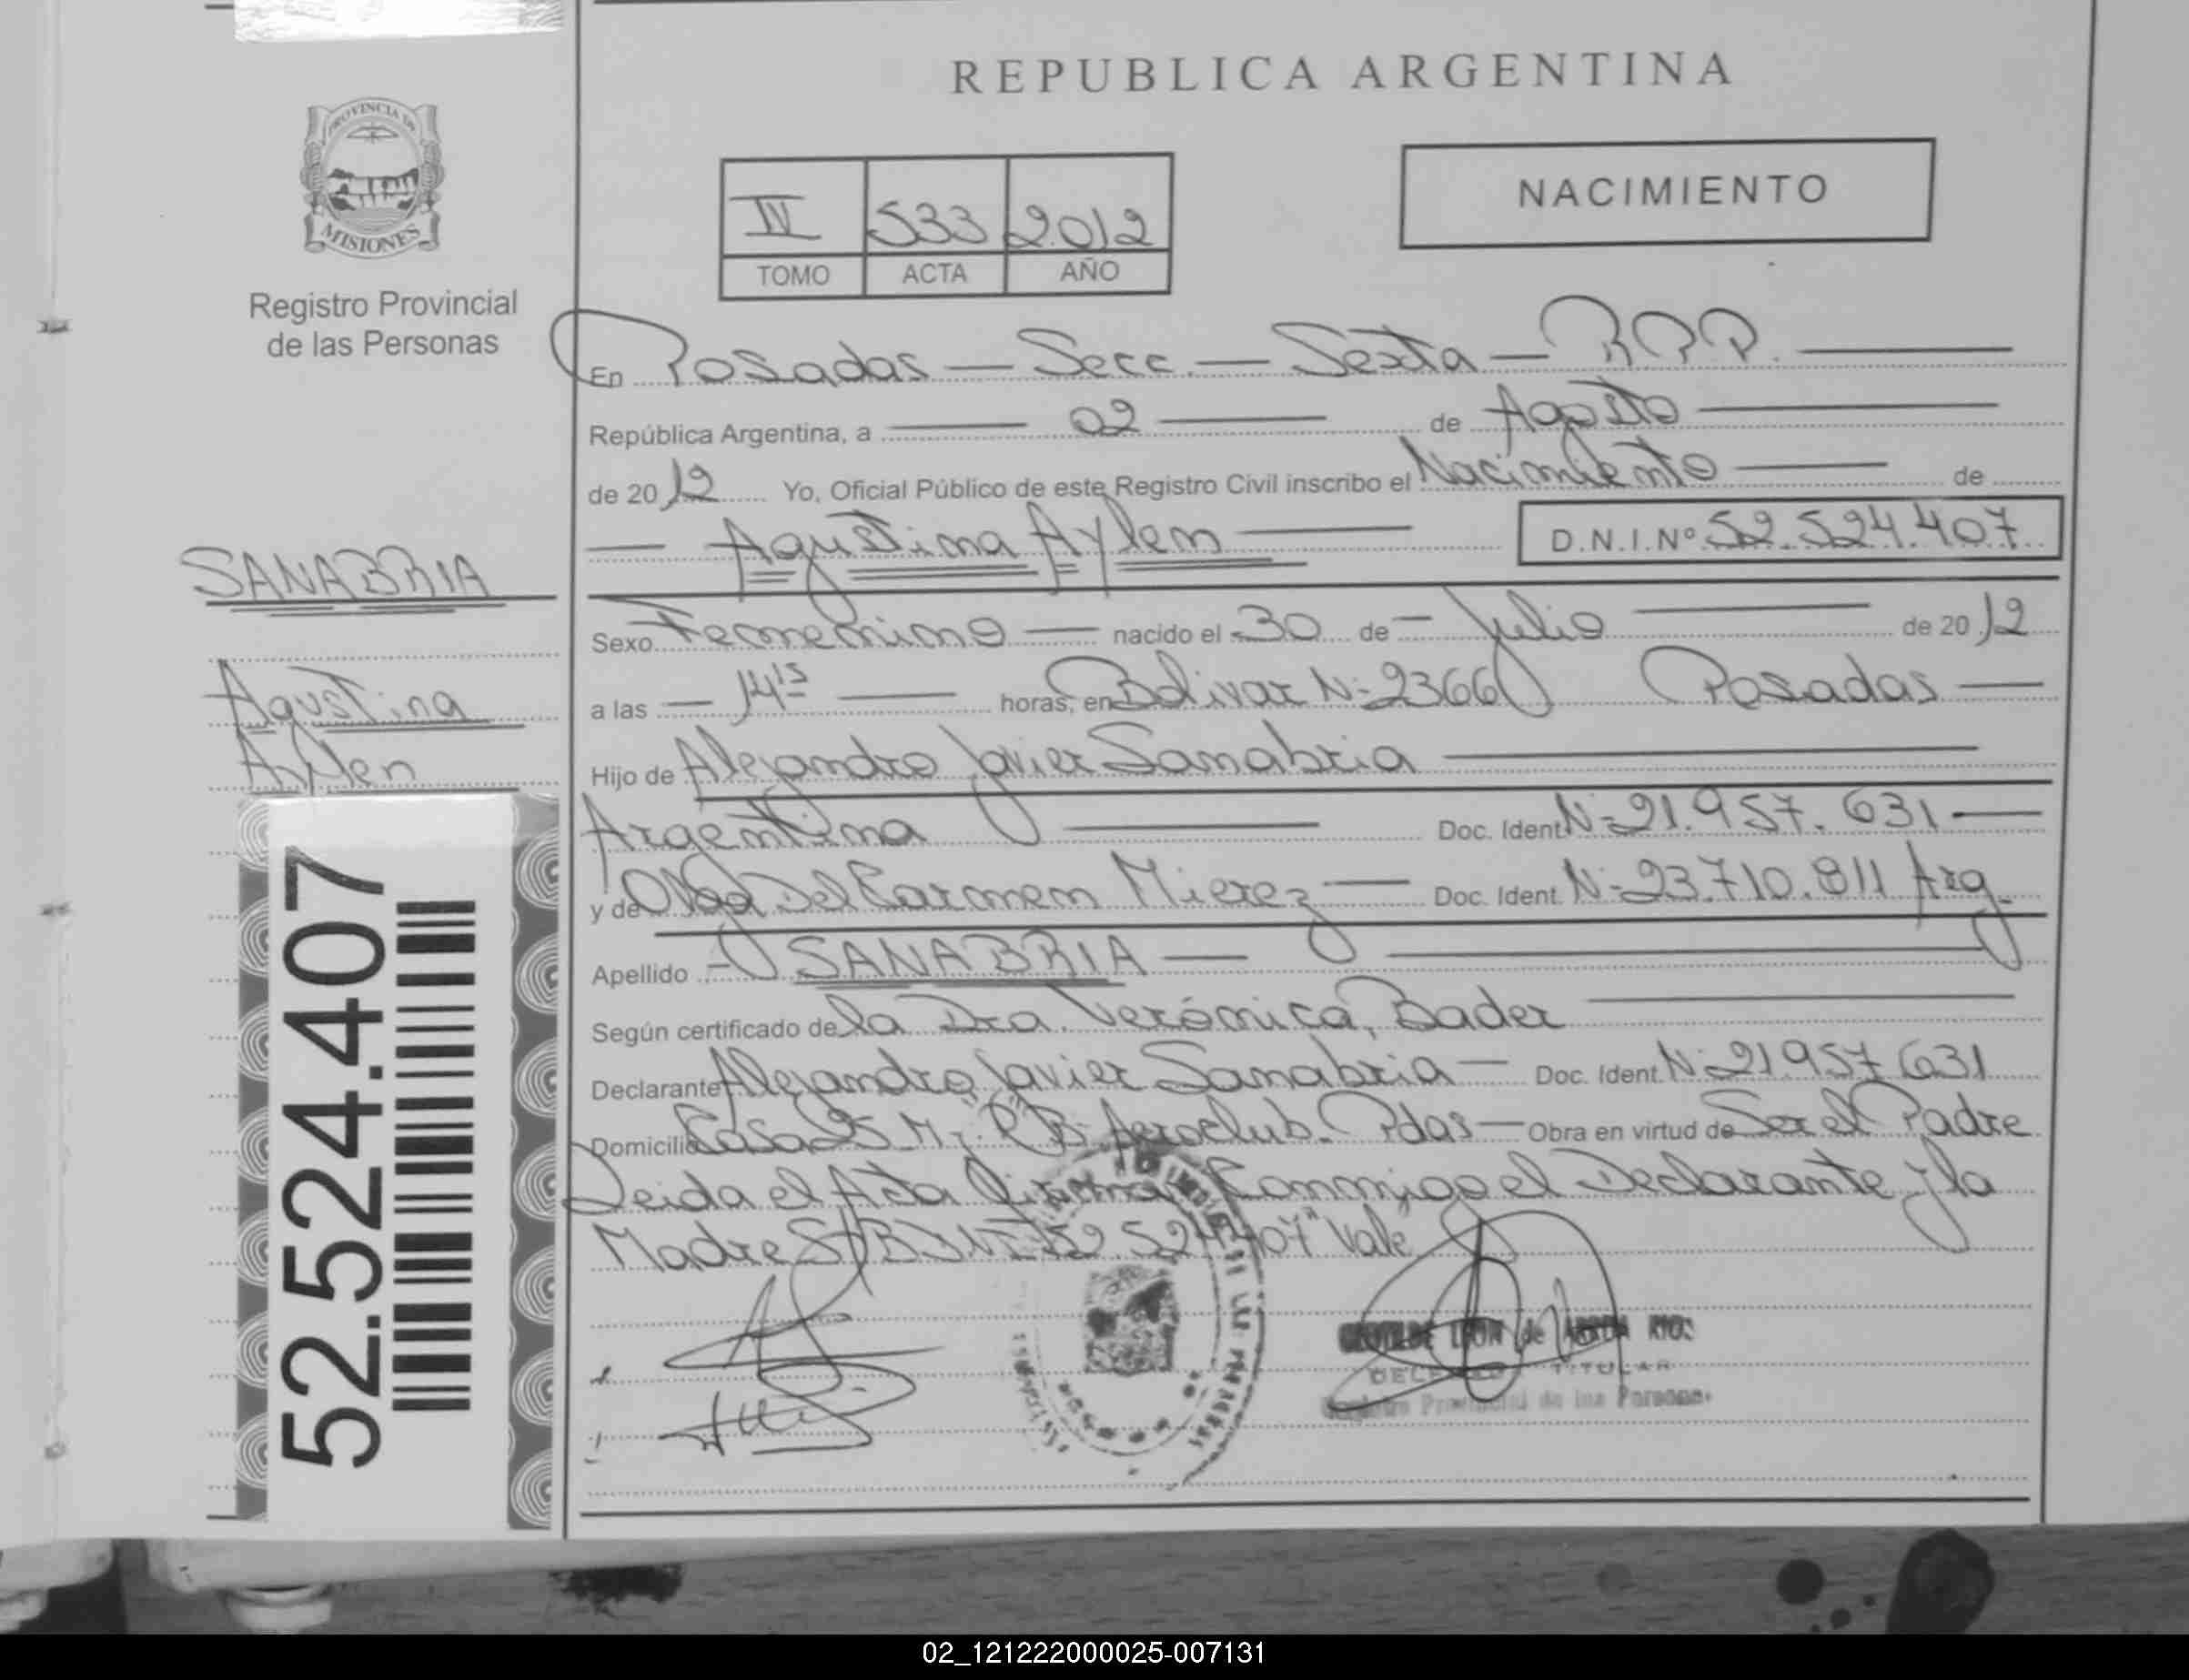 REPUBLICA ARGENTINA
PROVINCIA DE
MISIONES
Registro Provincial
de las Personas
IV 533 2012
TOMO ACTA AÑO
NACIMIENTO
En Posadas — Secc. — Sexta — R.P.P. —
República Argentina, a — 02 — de Agosto —
de 2012 Yo, Oficial Público de este Registro Civil inscribo el Nacimiento — de
— Agustina Aylen — D.N.I.Nº 52.524.407
SANABRIA
Agustina
Aylen
52.524.407
Sexo Femenino — nacido el 30 de — Julio — de 2012
a las — 14 15 — horas, en Bolivar Nº 2366 Posadas —
Hijo de Alejandro Javier Sanabria —
Argentina — Doc. Ident. Nº 21.957.631 —
y de Olga Del Carmen Mierez — Doc. Ident. Nº 23.710.811 Arg.
Apellido — SANABRIA —
Según certificado de la Dra. Verónica Bader —
Declarante Alejandro Javier Sanabria — Doc. Ident. Nº 21957631
Domicilio Casa 25 M Aeroclub. Pdas — Obra en virtud de Ser el Padre
Leida el Acta Conmigo el Declarante y la
Madre 52 524407" Vale
LEON de RIOS
TITULAR
Registro Provincial de las Personas
02_121222000025-007131